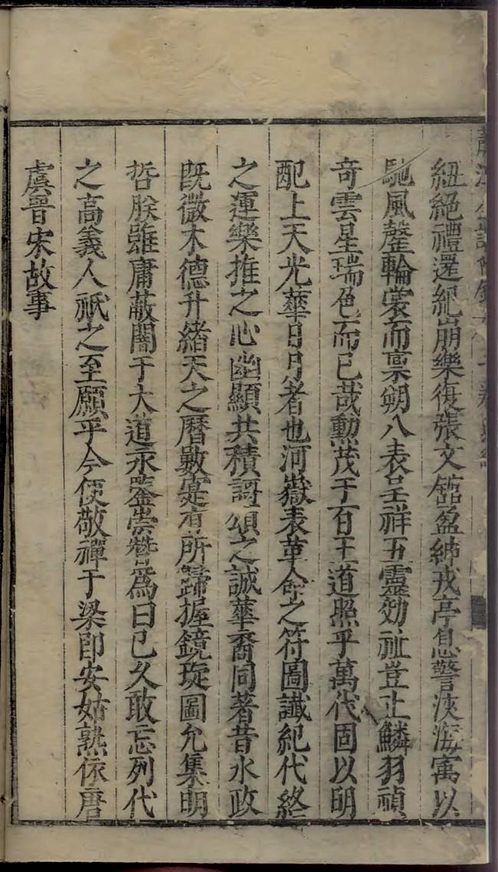 紐絕禮還紀崩樂復張文館盈紳戎亭息警浹海寓以
馳風罄輪裳而稟朔八表呈祥五靈効祉豈止鱗羽禎
奇雲星瑞色而已哉勳茂于百王道照乎萬代固以明
配上天光華日月者也河嶽表革命之符圖讖紀代終
之運樂推之心幽顯共積謌頌之誠華裔同著昔水政
既微木德升緒天之曆數寔有所歸握鏡琁圖允集明
哲朕雖庸蔽闇于大道永鑒崇替為日已久敢忘列代
之高義人祇之至願乎今便敬禪于梁即安姑熟依唐
虞晉宋故事